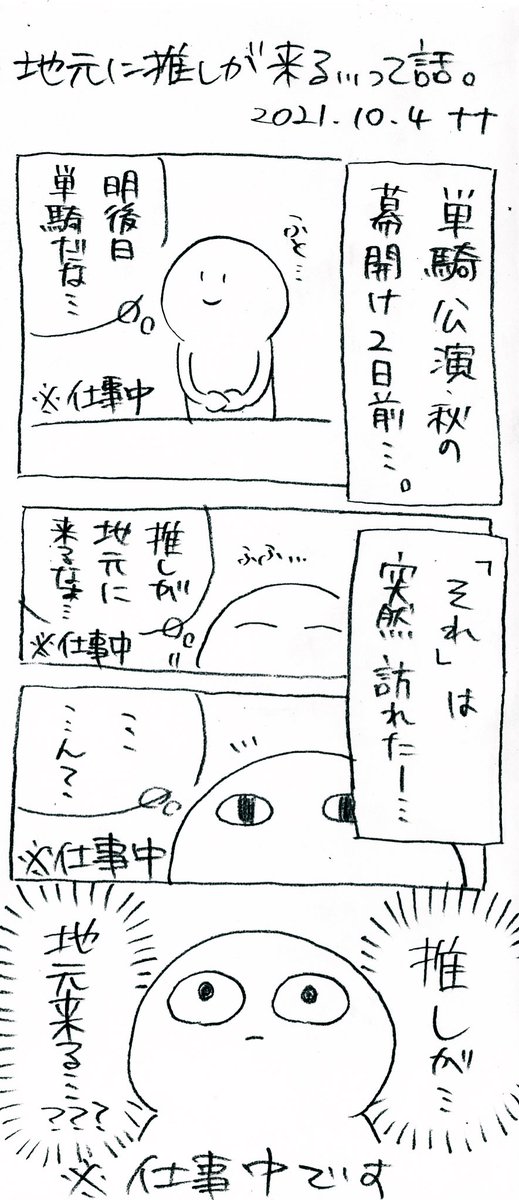 地元に推しが来る…って話。
2021.10.4 ナナ
単騎公演・秋の
幕開け2日前…。
ふと…
明後日
単騎だな…
※仕事中
「それ」は
突然訪れたー…
ふふふ…
推しが
地元に
来るなぁ…
※仕事中
…
…んで、
※仕事中
推しが…
地元来る…???
※仕事中です